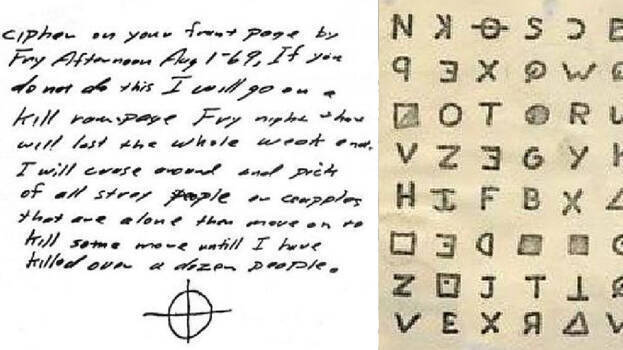 cipher on your front page by
Fry Afternoon Aug 1-69, If you
do not do this I will go on a
kill rampage Fry night that
will last the whole week end.
I will cruse around and pick
of all stray people or coupples
that are alone then move on to
kill some more untill I have
killed over a dozen people.
N ꓘ S Ɔ
q Ǝ X W
O T R
V Z Ǝ G Y
H F B X
Ǝ
Z J T ⊥
V E X Я Δ